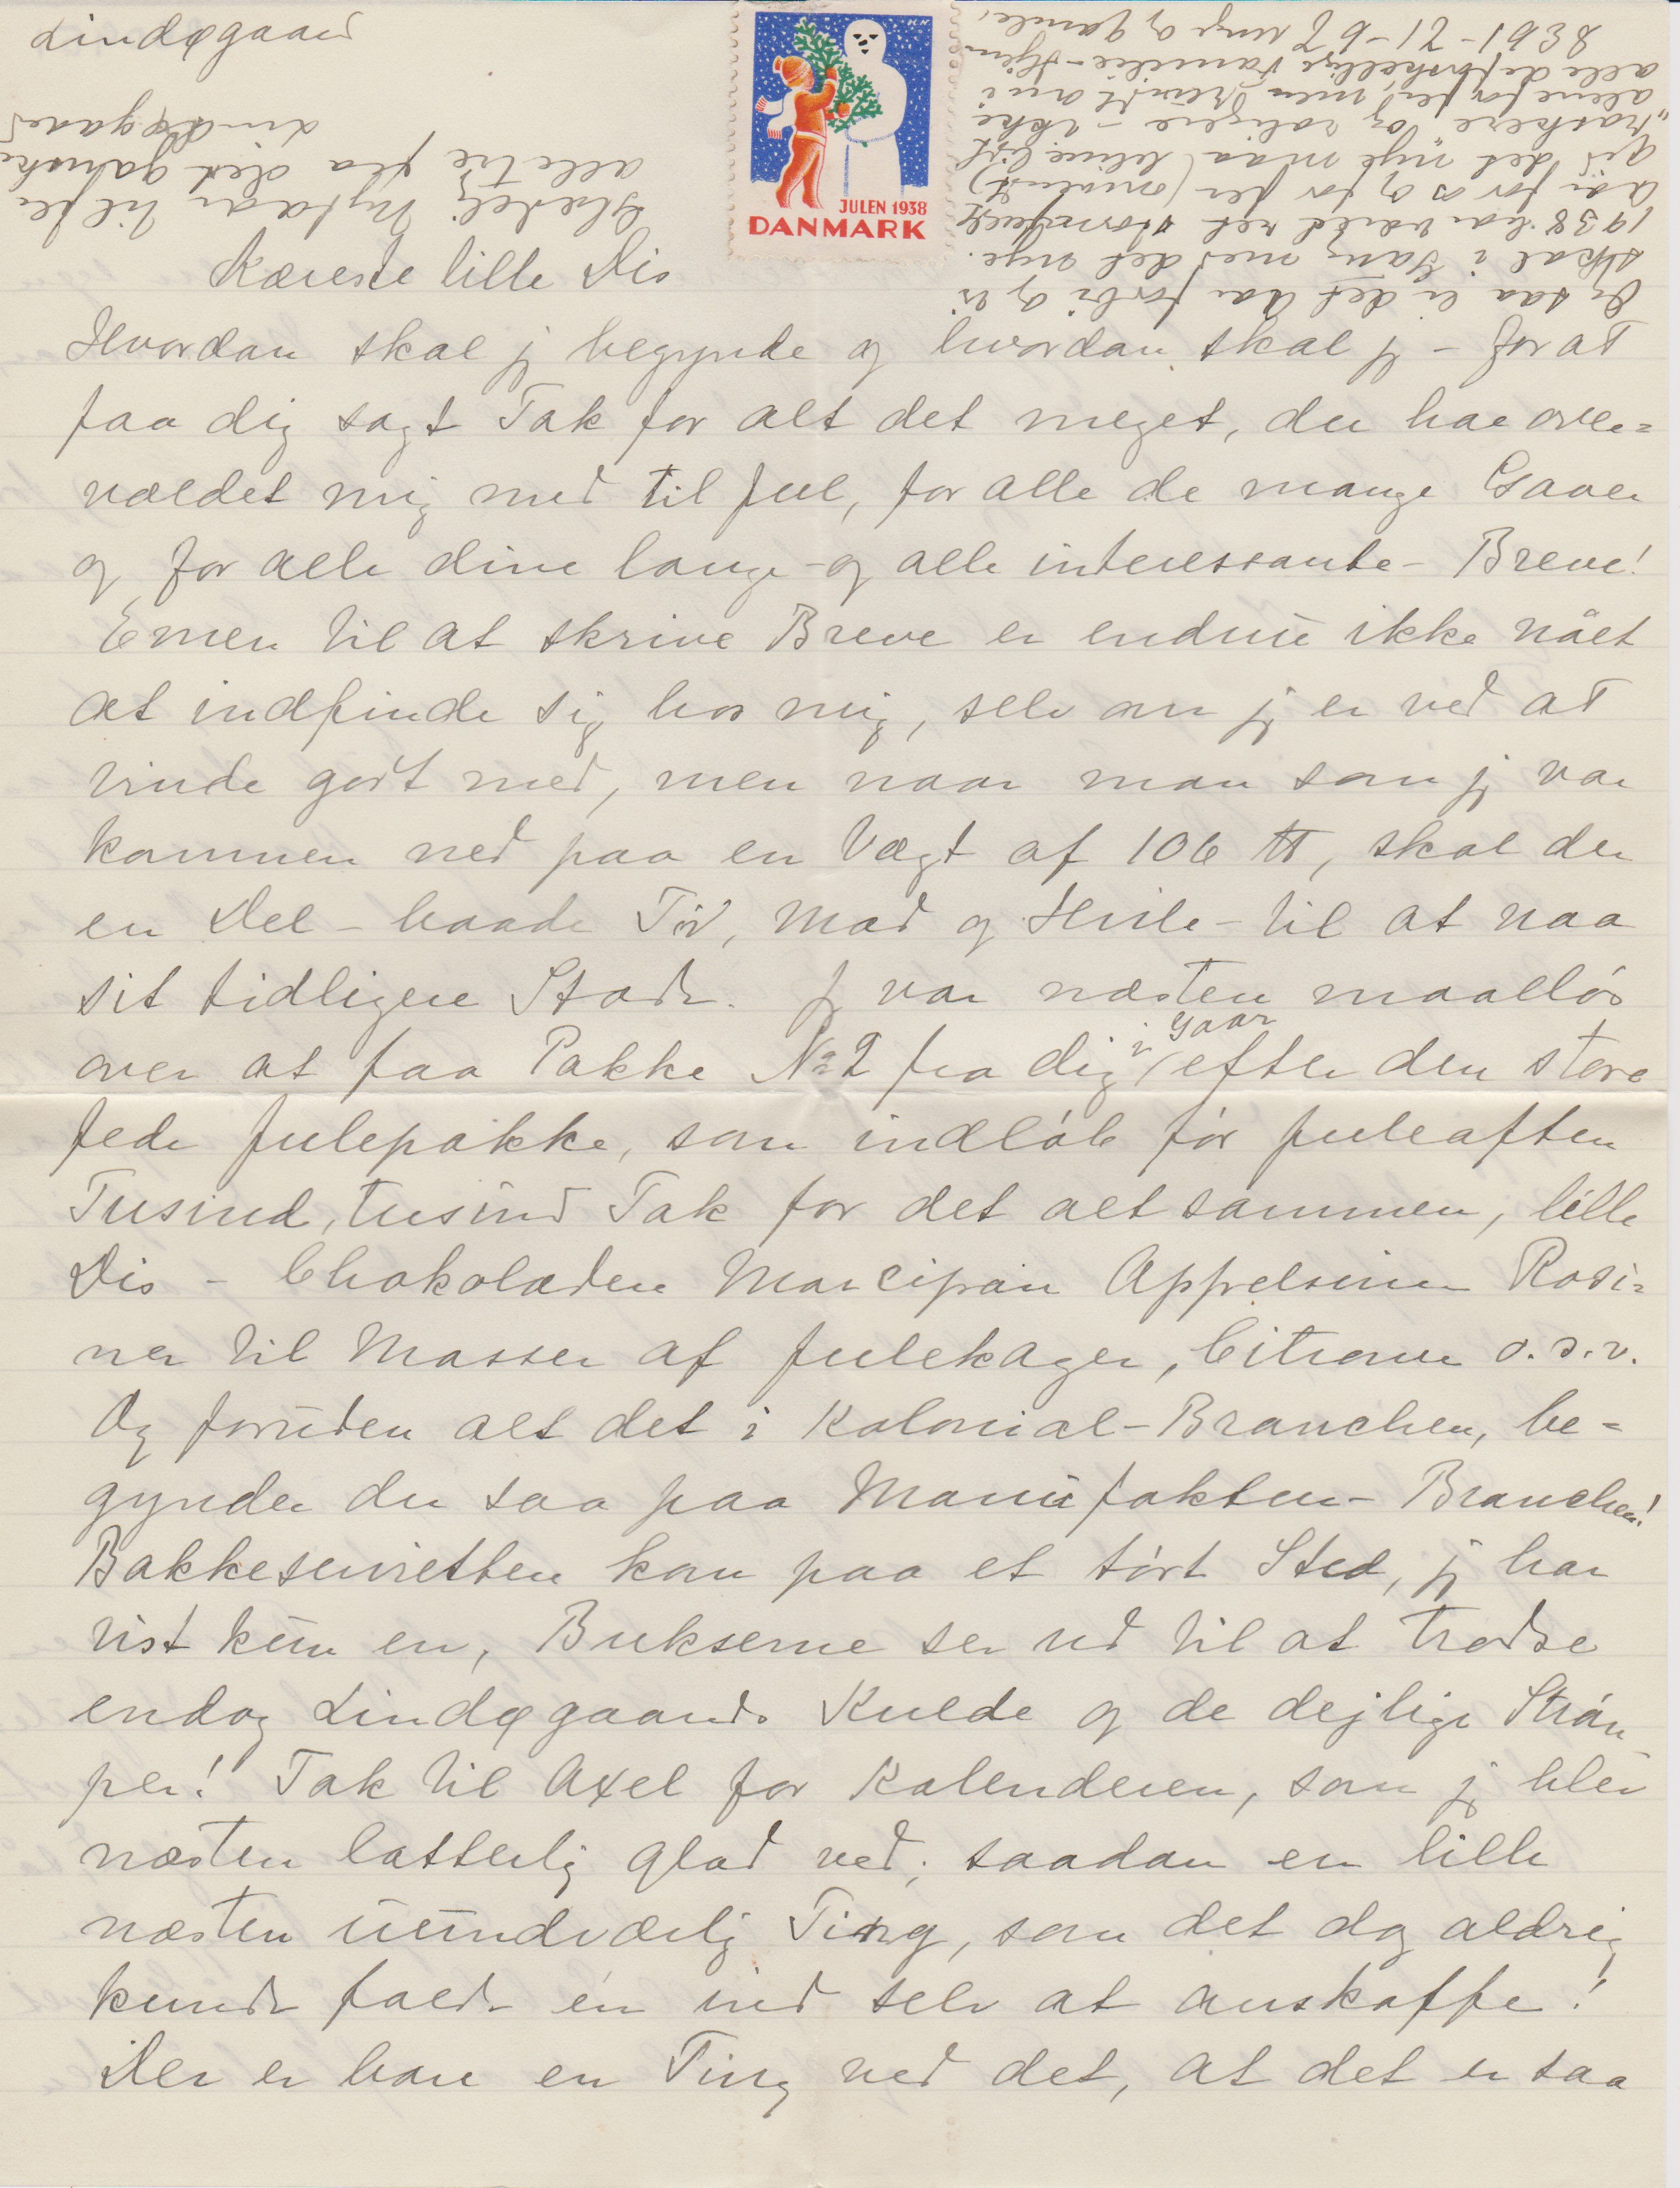 Lindøgaard
JULEN 1938
DANMARK
Kæreste lille Dis
Hvordan skal jg begynde og hvordan skal jg – for at
faa dig sagt Tak for alt det meget, du har over=
vældet mig med til Jul, for alle de mange Gaver
og for alle dine lange – og alle interessante – Breve!
Evnen til at skrive Breve er endnu ikke nået
at indfinde sig hos mig, selv om jg er ved at
vinde godt med, men naar man som jg var
kommen ned paa en Vægt af 106 ℔, skal der
en Del – baade Tid, Mad og Hvile – til at naa
sit tidligere Stade. Jg var næsten maalløs
over at faa Pakke No 2 fra dig i Gaar efter den store
fede Julepakke, som indløb før Juleaften
Tusind, tusind Tak for det altsammen, lille
Dis – Chokoladen Marcipan Appelsiner Rosi=
ner til Masser af Julekager, Citroner o.s.v.
Og foruden alt det i Kolonial-Branchen, be=
gynder du saa paa Manufaktur-Branchen!
Bakkeservietten kom paa et tørt Sted, jg har
vist kun en, Bukserne ser ud til at trodse
endog Lindøgaards Kulde og de dejlige Strøm
per! Tak til Axel for Kalenderen, som jg blev
næsten latterlig glad ved; saadan en lille
næsten uundværlig Ting, som det dog aldrig
kunde falde én ind selv at anskaffe!
Der er bare en Ting ved det, at det er saa
Og saa er det Aar forbi og vi
skal i Gang med det nye.
1938 har været ret stormfuldt
Aar for os og for jer (omvendt)
gid det nye maa blive lidt
"raskere" og roligere – ikke
alene for jer, men rundt om i
alle de forskellige Familie-Hjem
Unge og Gamle.
1938
Glædelig Nytaar til jer
alle tre fra det gamle
Lindøgaard